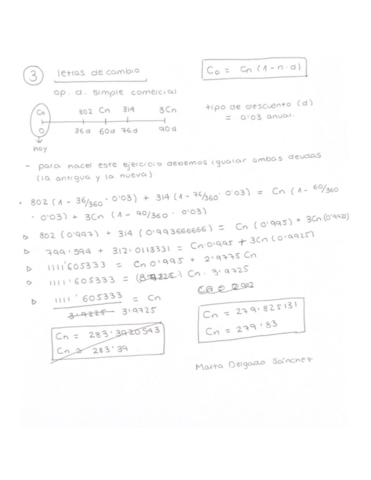 3 letras de cambio
C0 = Cn (1 - n · d)
op. d. simple comercial
C0 802 Cn 314 3Cn
0 36d 60d 76d 90d
hoy
tipo de descuento (d)
= 0'03 anual.
- para hacer este ejercicio debemos igualar ambas deudas
(la antigua y la nueva)
· 802 (1 - 36/360 · 0'03) + 314 (1 - 76/360 · 0'03) = Cn (1 - 60/360
· 0'03) + 3Cn (1 - 90/360 · 0'03)
802 (0'997) + 314 (0'993666666) = Cn (0'995) + 3Cn (0'9925)
799'594 + 312'0113331 = Cn 0'995 + 3Cn (0'9925)
1111'605333 = Cn 0'995 + 2'9775 Cn
1111'605333 = Cn · 3'9725
1111'605333 = Cn
3'9725
Cn = 283'3920593
Cn = 283'39
Cn = 279'825131
Cn = 279'83
Marta Delgado Sánchez